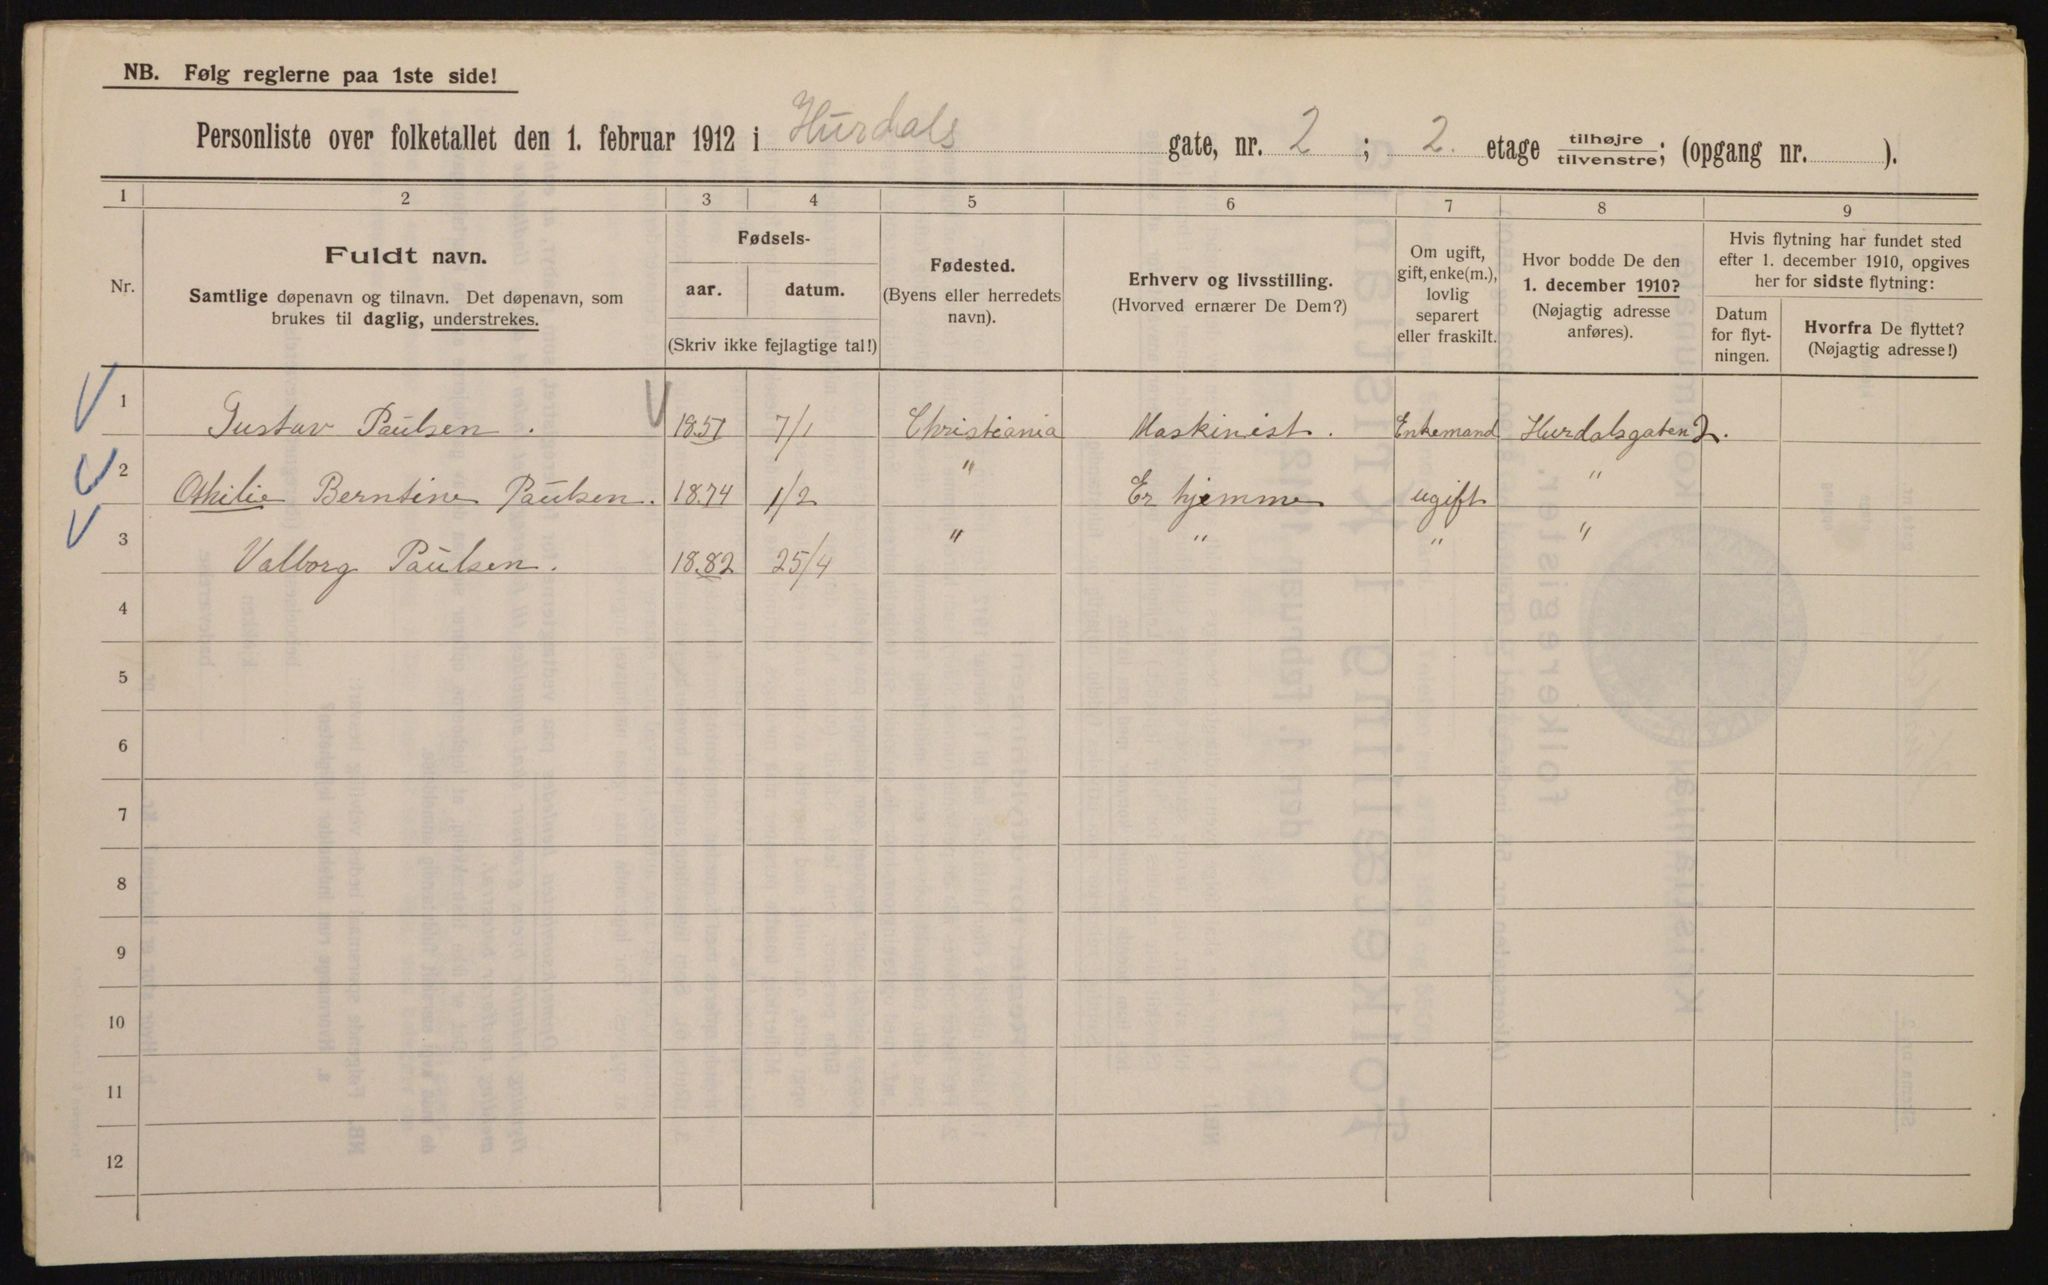 NB. Følg reglerne paa 1ste side!
Personliste over folketallet den 1. februar 1912 i Hurdals gate, nr. 2 ; 2. etage tilhøjre/tilvenstre; (opgang nr. ).
1 2 3 4 5 6 7 8 9
Nr.
Fuldt navn.
Samtlige døpenavn og tilnavn. Det døpenavn, som
brukes til daglig, understrekes.
Fødsels-
aar. datum.
(Skriv ikke fejlagtige tal!)
Fødested.
(Byens eller herredets
navn).
Erhverv og livsstilling.
(Hvorved ernærer De Dem?)
Om ugift,
gift, enke(m.),
lovlig
separert
eller fraskilt.
Hvor bodde De den
1. december 1910?
(Nøjagtig adresse
anføres).
Hvis flytning har fundet sted
efter 1. december 1910, opgives
her for sidste flytning:
Datum
for flyt-
ningen.
Hvorfra De flyttet?
(Nøjagtig adresse!)
1 Gustav Paulsen . 1851 7/1 Christiania Maskinist. Enkemand Hurdalsgaten 2.
2 Othilie Berntine Paulsen. 1874 1/2 " Er hjemme ugift "
3 Valborg Paulsen. 1882 25/4 " " " "
4
5
6
7
8
9
10
11
12